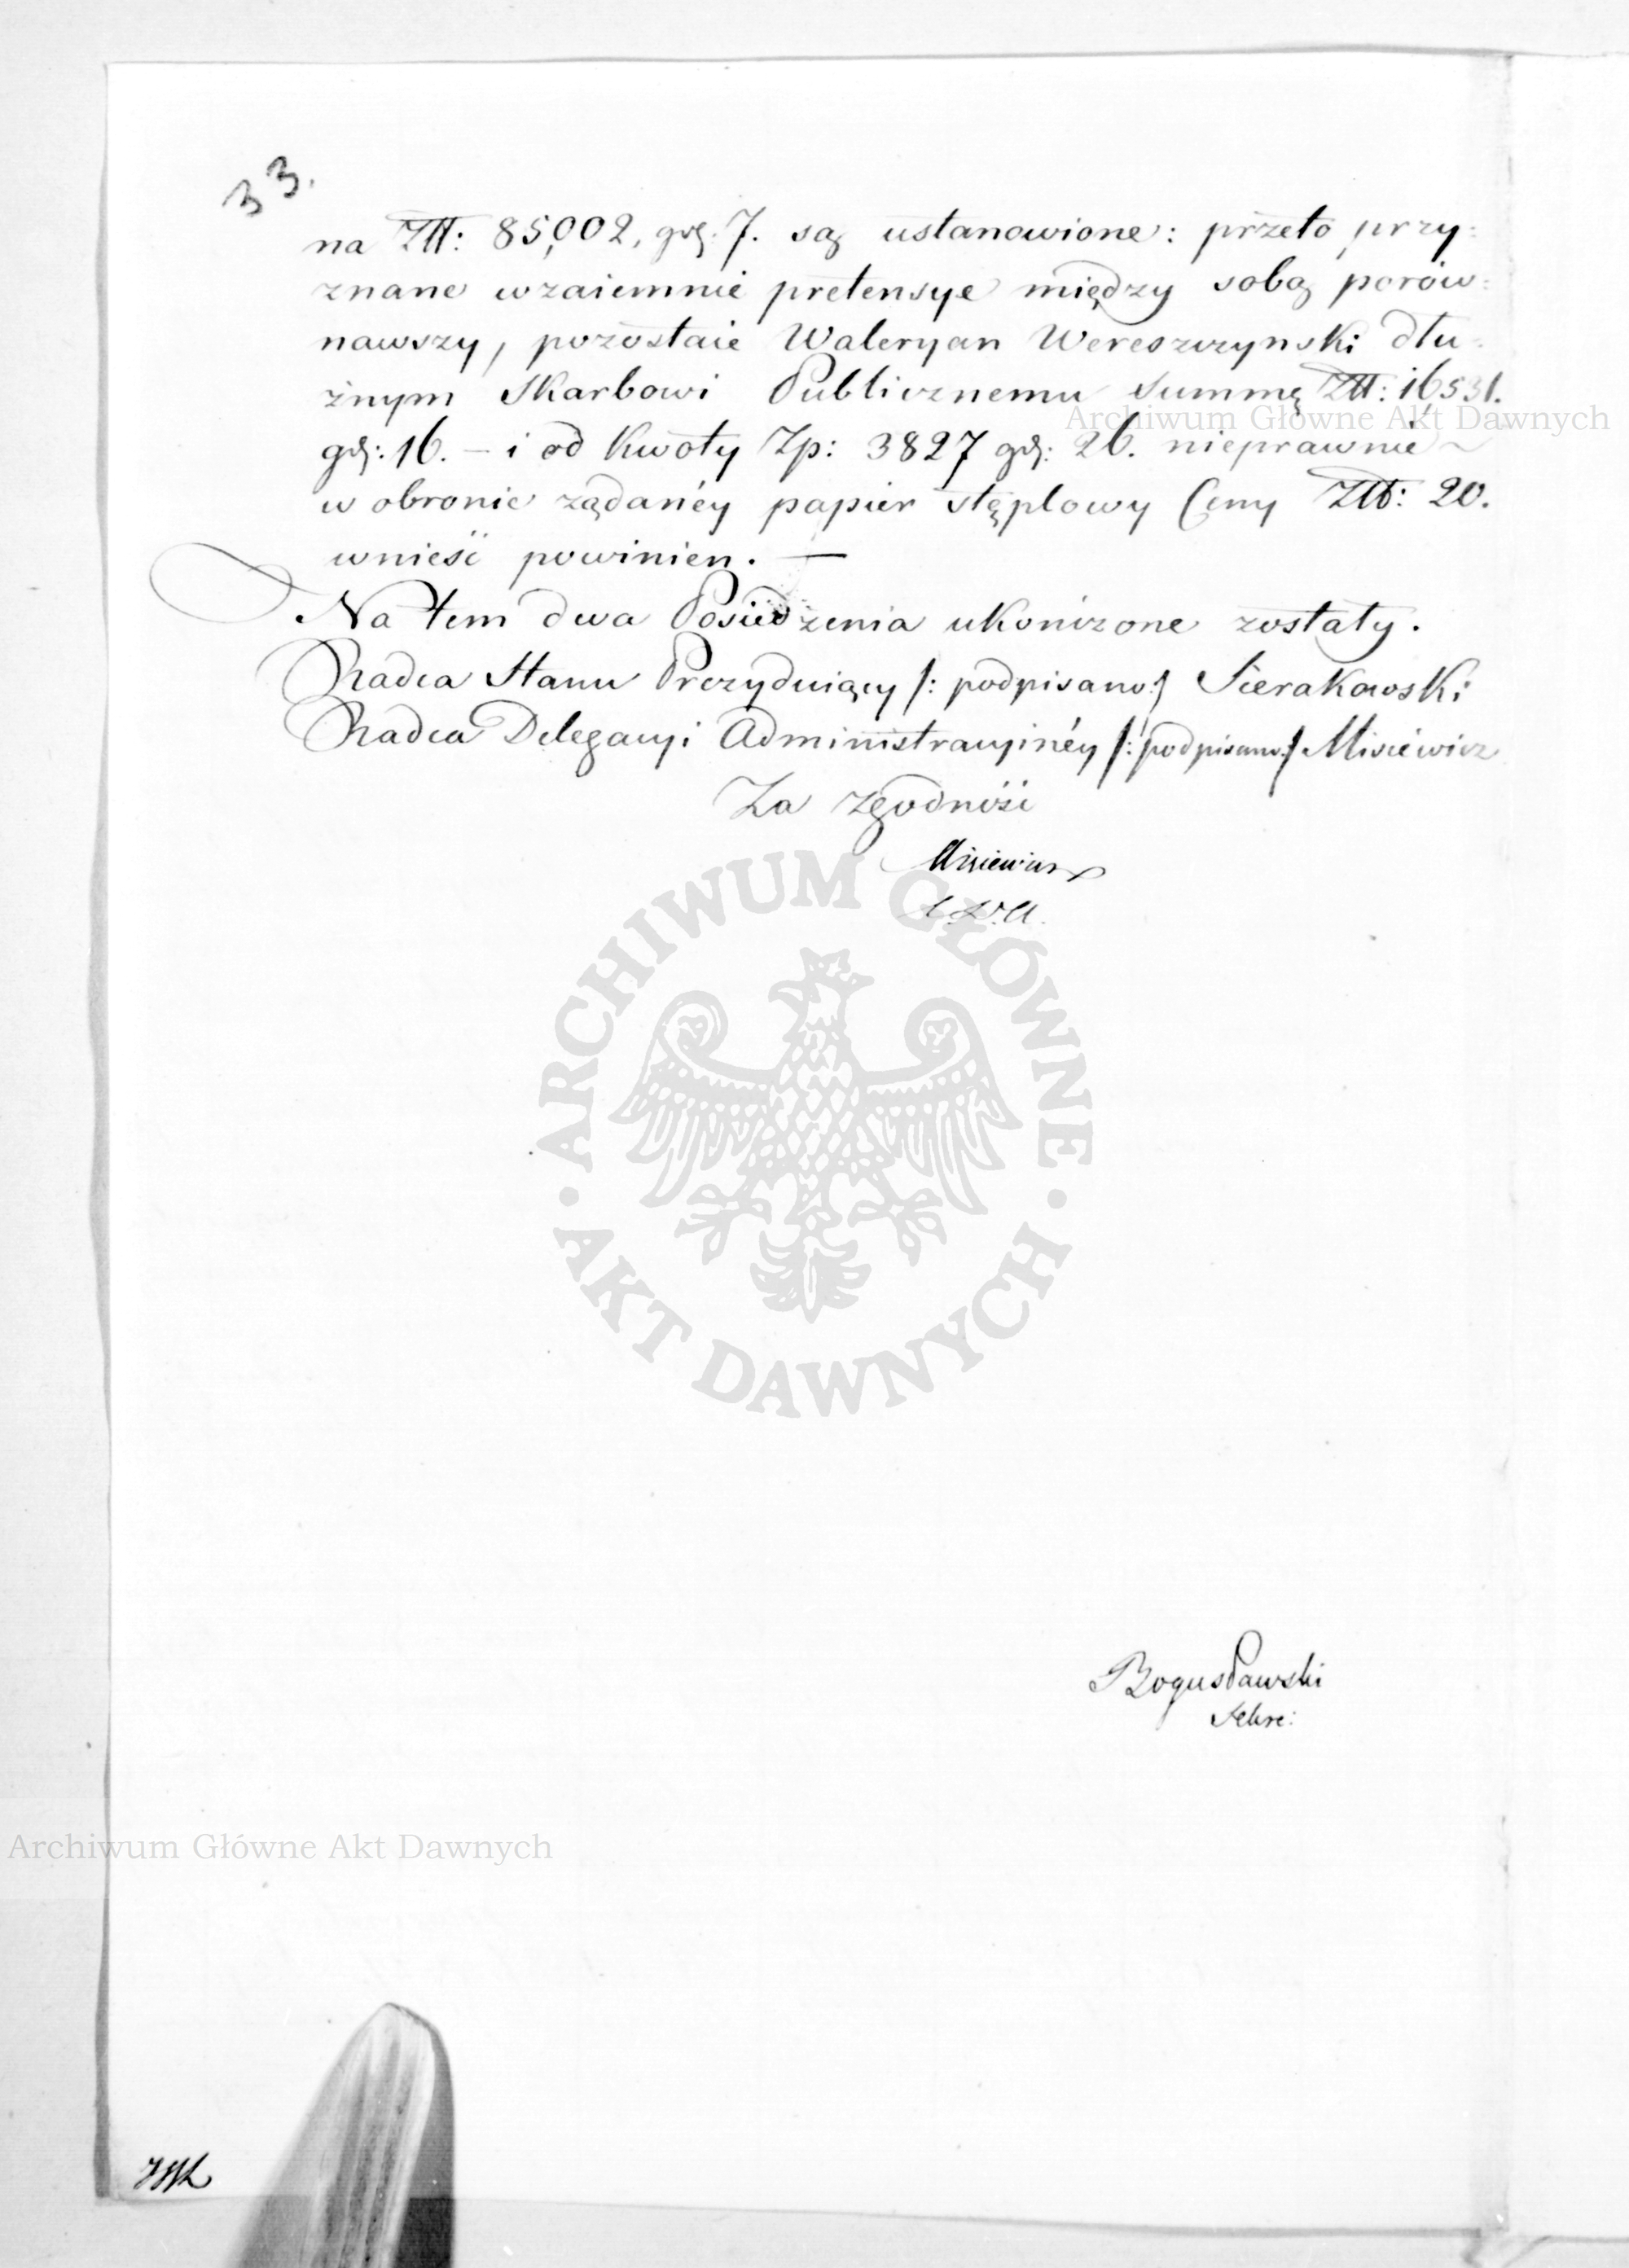 33.
na Złł: 85,002, gr: 7. są ustanowione: przeto przy:
znane wzaiemnie pretensye między sobą porów:
nawszy, pozostaie Waleryan Wereszczynski dłu:
żnym Skarbowi Publicznemu Summę Złł: 16,531.
Archiwum Główne Akt Dawnych
gr: 16. – i od Kwoty Zp: 3827 gr: 26. nieprawnie ~
w obronie żądanéy papier stęplowy Ceny Złł: 20.
wnieść powinien. —
Na tem dwa Posiedzenia ukończone zostały.
Radca Stanu Prezyduiący /: podpisano :/ Sierakowski
Radca Delegacyi Administracyinéy /: podpisano :/ Misiewicz
Za zgodność
Misiewicz
ARCHIWUM GŁÓWNE
· AKT DAWNYCH ·
Bogusławski
Sekre:
Archiwum Główne Akt Dawnych